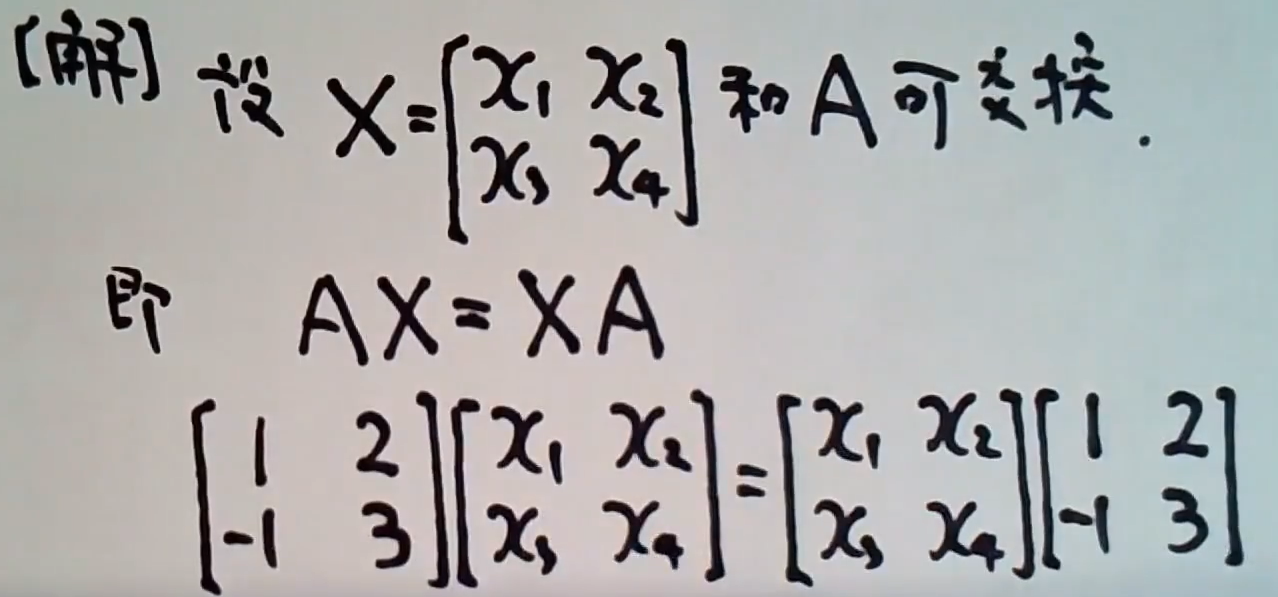 [解] 设 X=[x₁ x₂; x₃ x₄] 和 A 可交换.
即 AX=XA
[1 2; -1 3][x₁ x₂; x₃ x₄]=[x₁ x₂; x₃ x₄][1 2; -1 3]